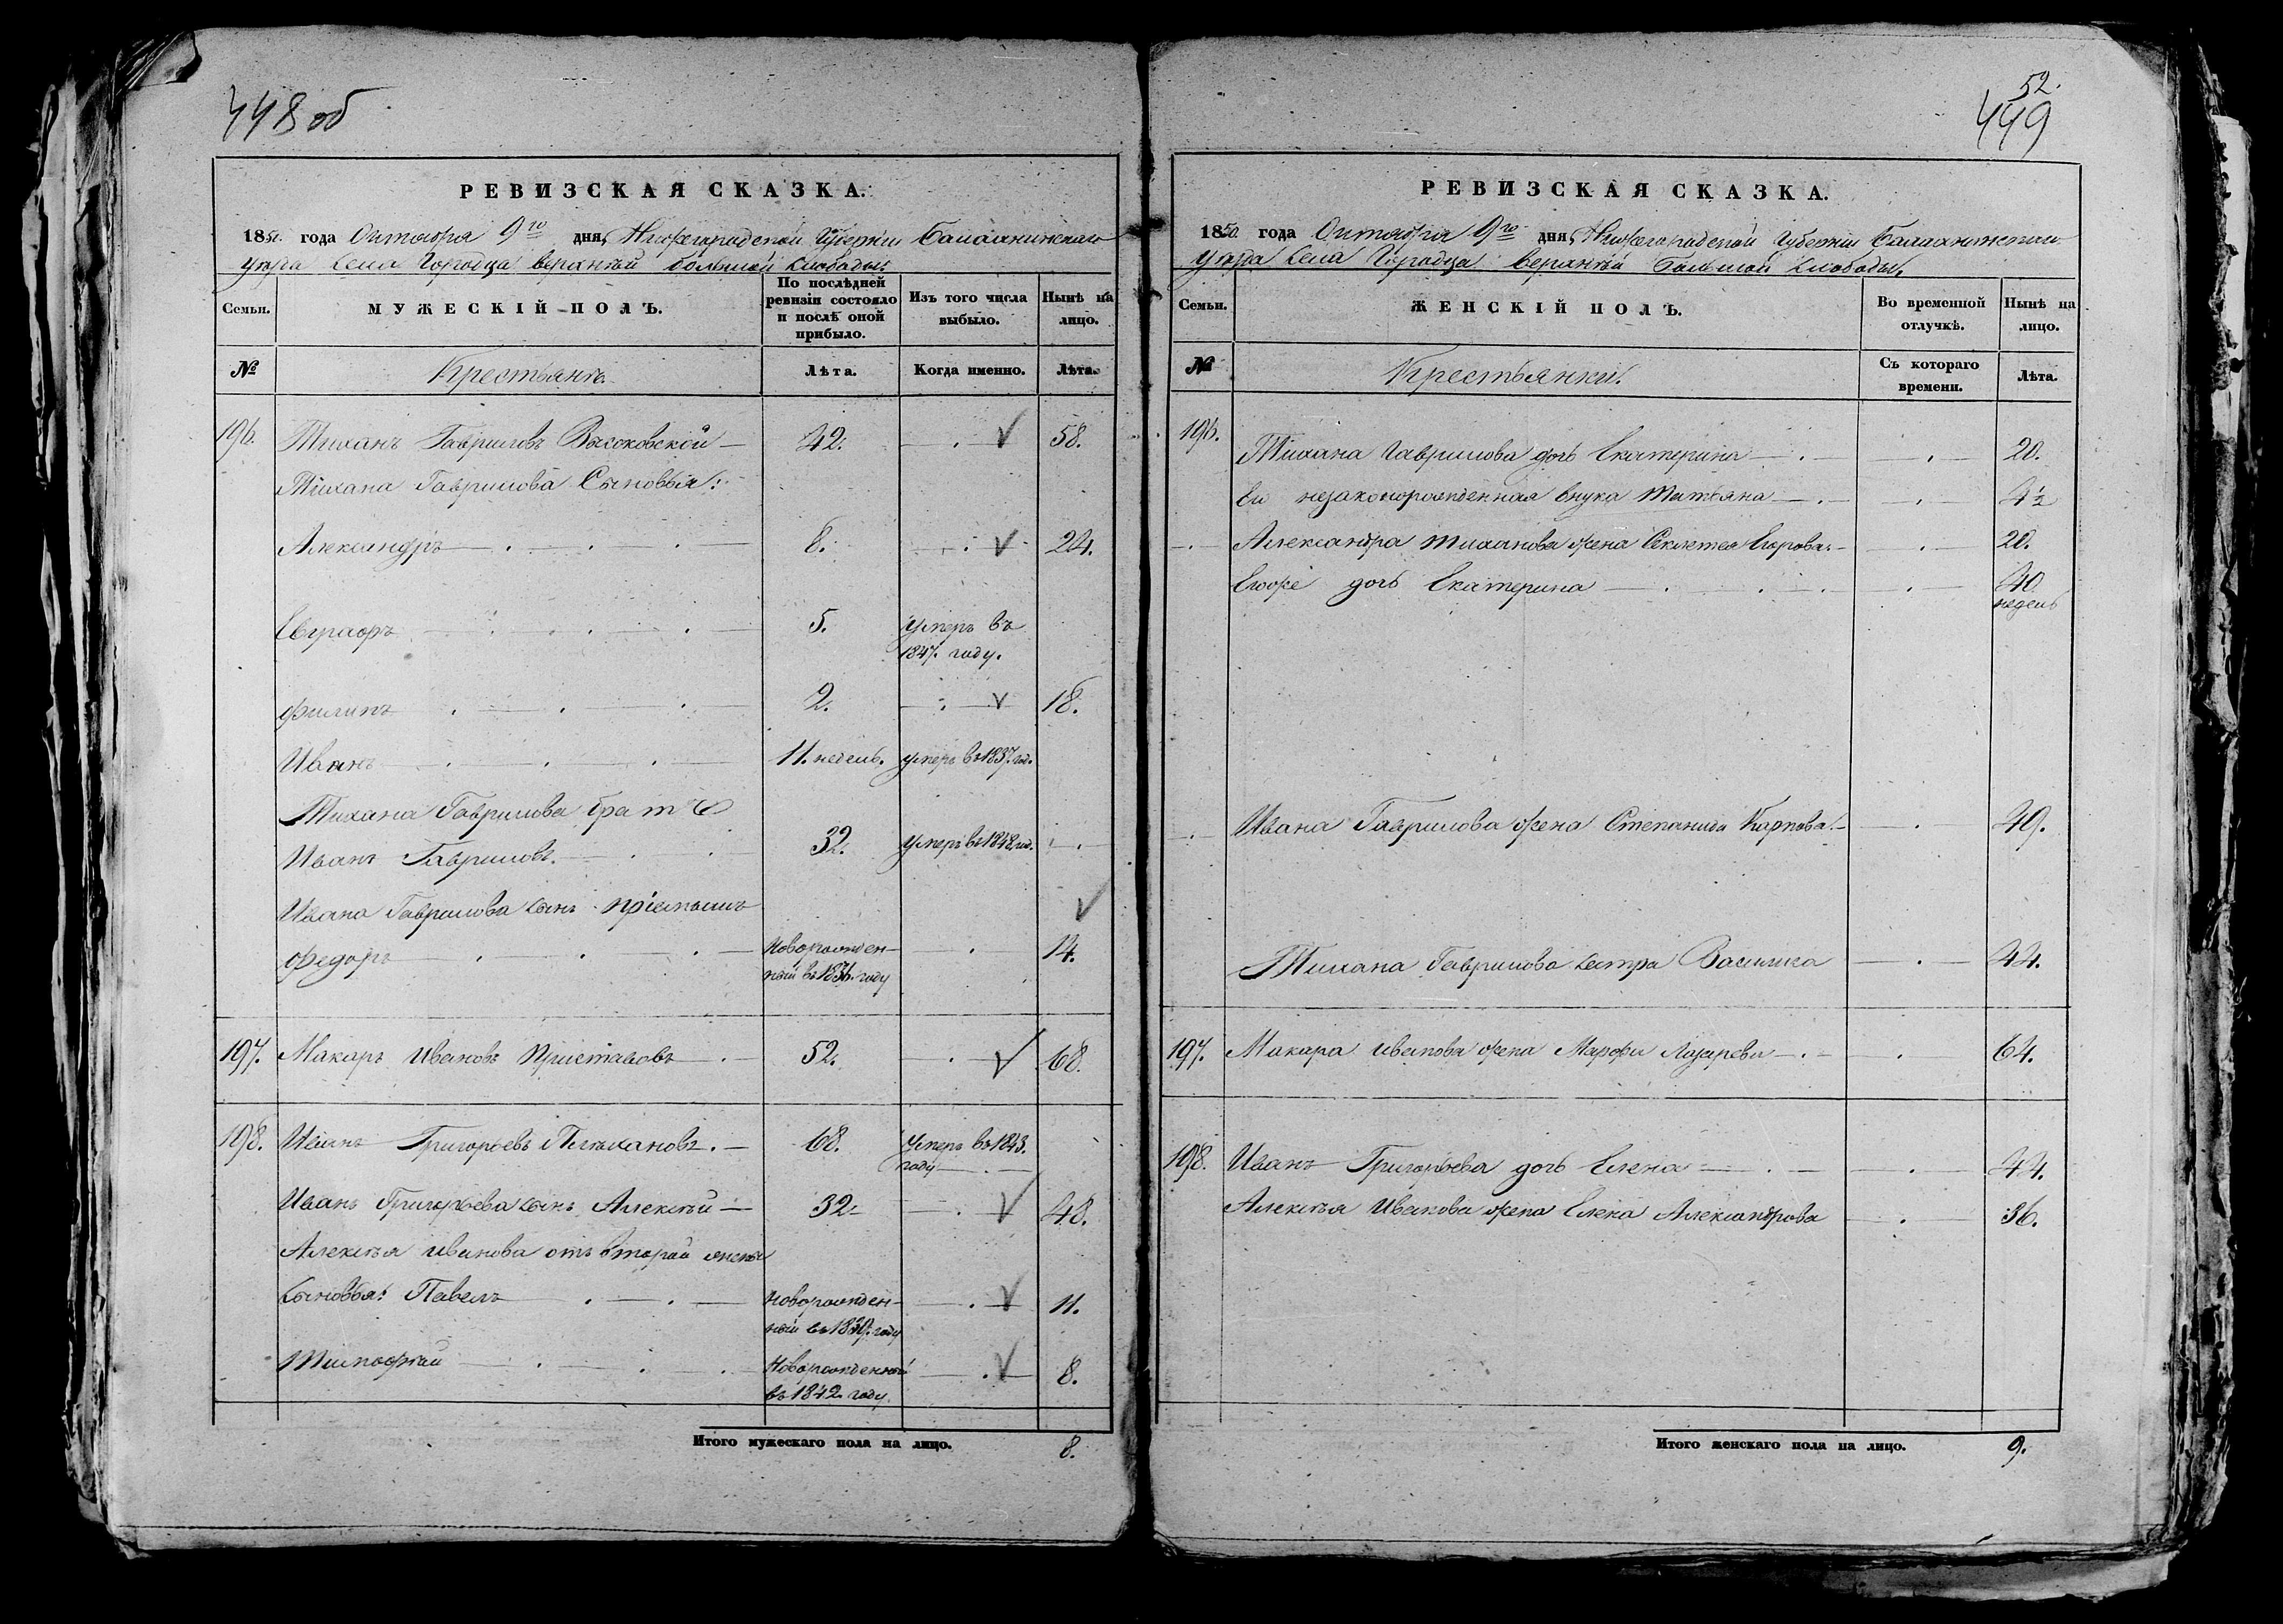 448 об
РЕВИЗСКАЯ СКАЗКА.
1850. года Октября 9го дня, Нижегородской Губернии Балахнинскаго
уезда Села Городца верхней большой слободы.
Семьи.
МУЖЕСКІЙ ПОЛЪ.
По послѣдней ревизіи состояло и послѣ оной прибыло.
Изъ того числа выбыло.
Нынѣ на лицо.
№
Крестьяне.
Лѣта.
Когда именно.
Лѣта.
196. Тиханъ Гавриловъ Высоковской 42. 58.
Тихана Гаврилова Сыновья:
Александръ 8. 24.
Евграфъ 5. умеръ въ
1847. году.
Филипъ 2. 18.
Иванъ 11. недель. умеръ въ 1837. год.
Тихана Гаврилова братъ
Иванъ Гавриловъ. 32. умеръ въ 1848. год.
Ивана Гаврилова сынъ пріемышъ
Федоръ Новорожден- 14.
ный въ 1836. году
197. Макаръ Ивановъ Приставовъ 52. 68.
198. Иванъ Григорьевъ Плехановъ. 68. Умеръ въ 1843.
году
Иванъ Григорьева сынъ Алексѣй 32. 48.
Алексѣя Иванова отъ второй жены
сыновья: Павелъ Новорожден- 11.
ный въ 1839. году
Тимофѣй Новорожденный 8.
въ 1842 году.
Итого мужескаго пола на лицо. 8.
52.
449
РЕВИЗСКАЯ СКАЗКА.
1850. года Октября 9го дня, Нижегородской Губерніи Балахнинскаго
уезда Села Городца верхней большой слободы.
Семьи.
ЖЕНСКІЙ ПОЛЪ.
Во временной отлучкѣ.
Нынѣ на лицо.
№
Крестьянки.
Съ котораго времени.
Лѣта.
196.
Тихана Гаврилова дочь Екатерина 20.
Ея незаконорожденная внука Татьяна 4½
Александра Тиханова жена Секлетея Егорова 20.
Евоже дочь Екатерина 40
недель
Ивана Гаврилова жена Степанида Карпова 49.
Тихана Гаврилова сестра Василиса 44.
197. Макара Иванова жена Марфа Лазарева 64.
198. Иванъ Григорьева дочь Елена 44.
Алексѣя Иванова жена Елена Александрова 36.
Итого женскаго пола на лицо. 9.